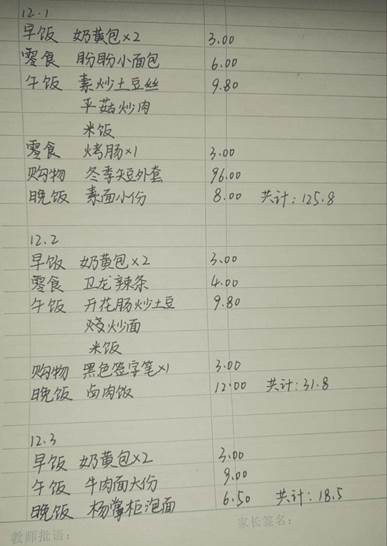 12.1
早饭 奶黄包×2 3.00
零食 盼盼小面包 6.00
午饭 素炒土豆丝 9.80
平菇炒肉
米饭
零食 烤肠×1 3.00
购物 冬季短外套 96.00
晚饭 素面小份 8.00 共计:125.8
12.2
早饭 奶黄包×2 3.00
零食 卫龙辣条 4.00
午饭 开花肠炒土豆 9.80
烧炒面
米饭
购物 黑色签字笔×1 3.00
晚饭 卤肉饭 12.00 共计:31.8
12.3
早饭 奶黄包×2 3.00
午饭 牛肉面大份 9.00
晚饭 杨掌柜泡面 6.50 共计:18.5
教师批语: 家长签名: